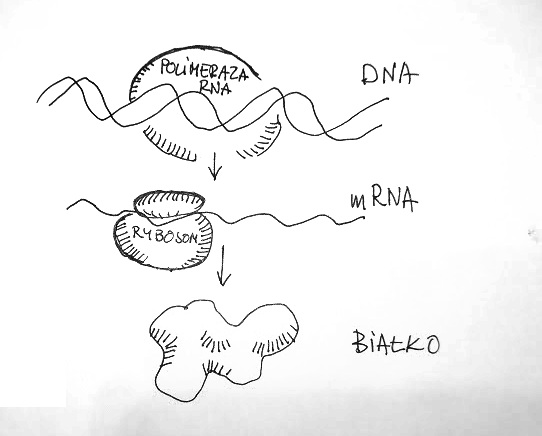 POLIMERAZA
RNA
DNA
mRNA
RYBOSOM
BIAŁKO